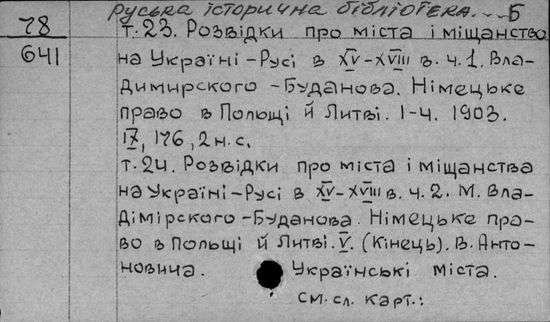 руська історична бібліотека. -- Б
78
641
т.23. Розвідки про міста і міщанство
на Україні-Русі в XV-XVIII в. ч.1. Вла-
димирского-Буданова. Німецьке
право в Польщі й Литві. 1-4. 1903.
IX, 176, 2 н.с.
т.24. Розвідки про міста і міщанства
на Україні-Русі в XV-XVIII в. ч.2. М. Вла-
дімірского-Буданова. Німецьке пра-
во в Польщі й Литві. V. (Кінець). В. Анто-
новича. Українські міста.
см. сл. карт.: